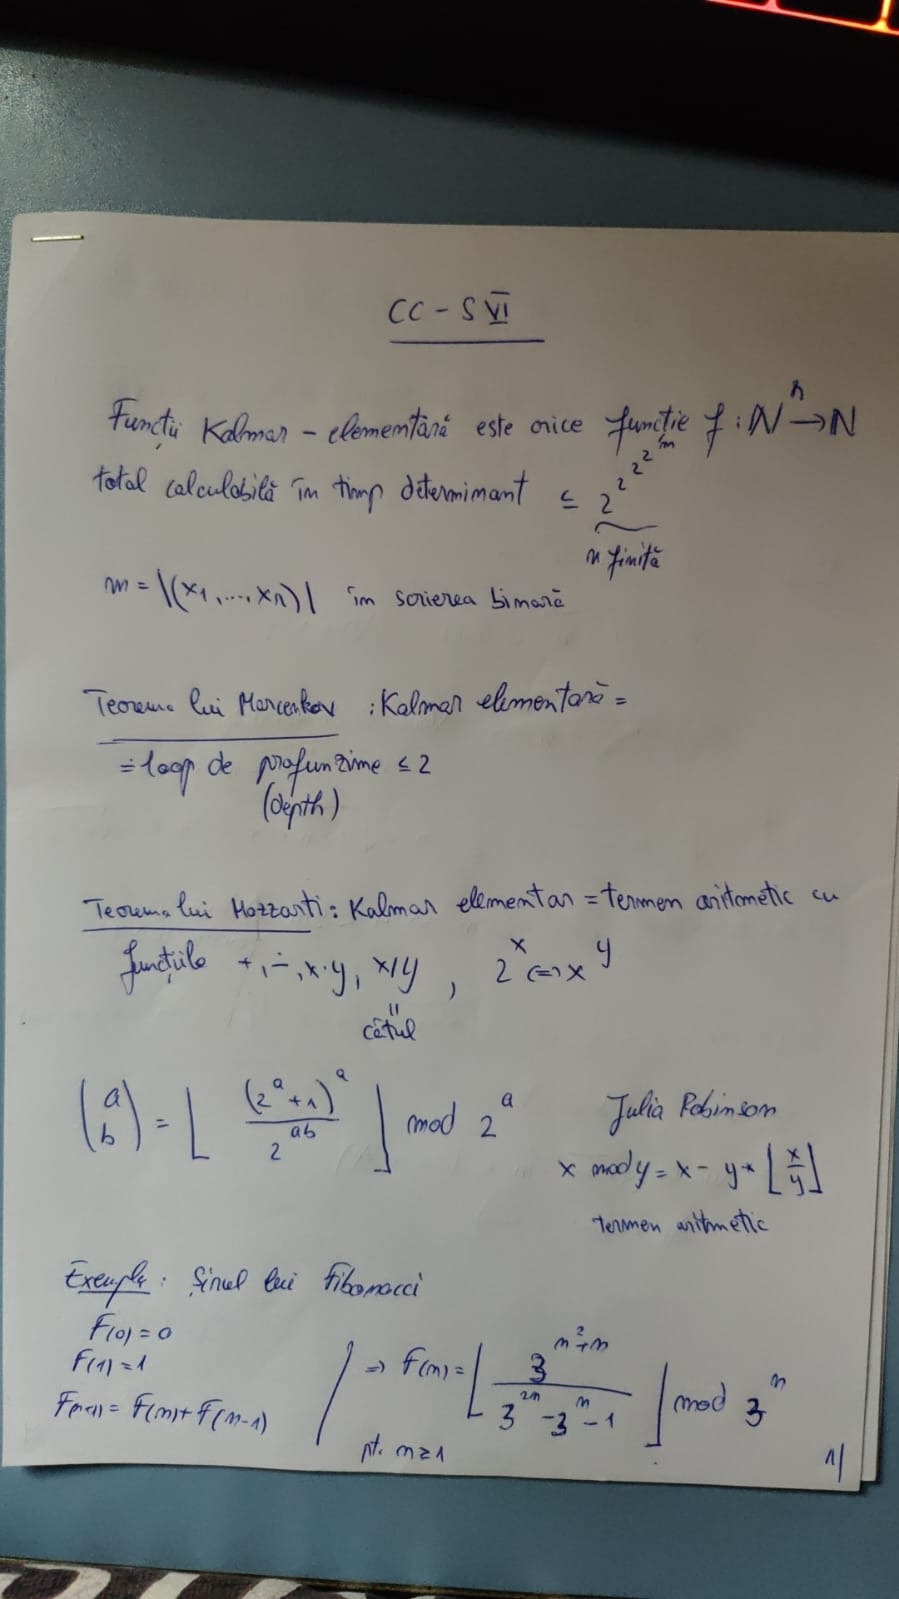 CC - S VI
Funcții Kalmar - elementară este orice funcție f : ℕ^k → ℕ
total calculabilă în timp determinant ≤ 2^2^2^2^m
n finită
m = |(x1, ..., xk)| în scrierea binară
Teorema lui Marcenkov : Kalmar elementară =
= loop de profunzime ≤ 2
(depth)
Teorema lui Mazzanti : Kalmar elementar = termen aritmetic cu
funcțiile +, ∸, x·y, x/y , 2^x <=> x^y
"
câtul
(a b) = ⌊ (2^a + 1)^a / 2^ab ⌋ mod 2^a Julia Robinson
x mod y = x - y * ⌊x/y⌋
termen aritmetic
Exemple : Șirul lui Fibonacci
F(0) = 0
F(1) = 1
F(n+1) = F(n) + F(n-1)
=> F(n) = ⌊ 3^(n^2+n) / (3^2n - 3^n - 1) ⌋ mod 3^n
pt. n ≥ 1
1/